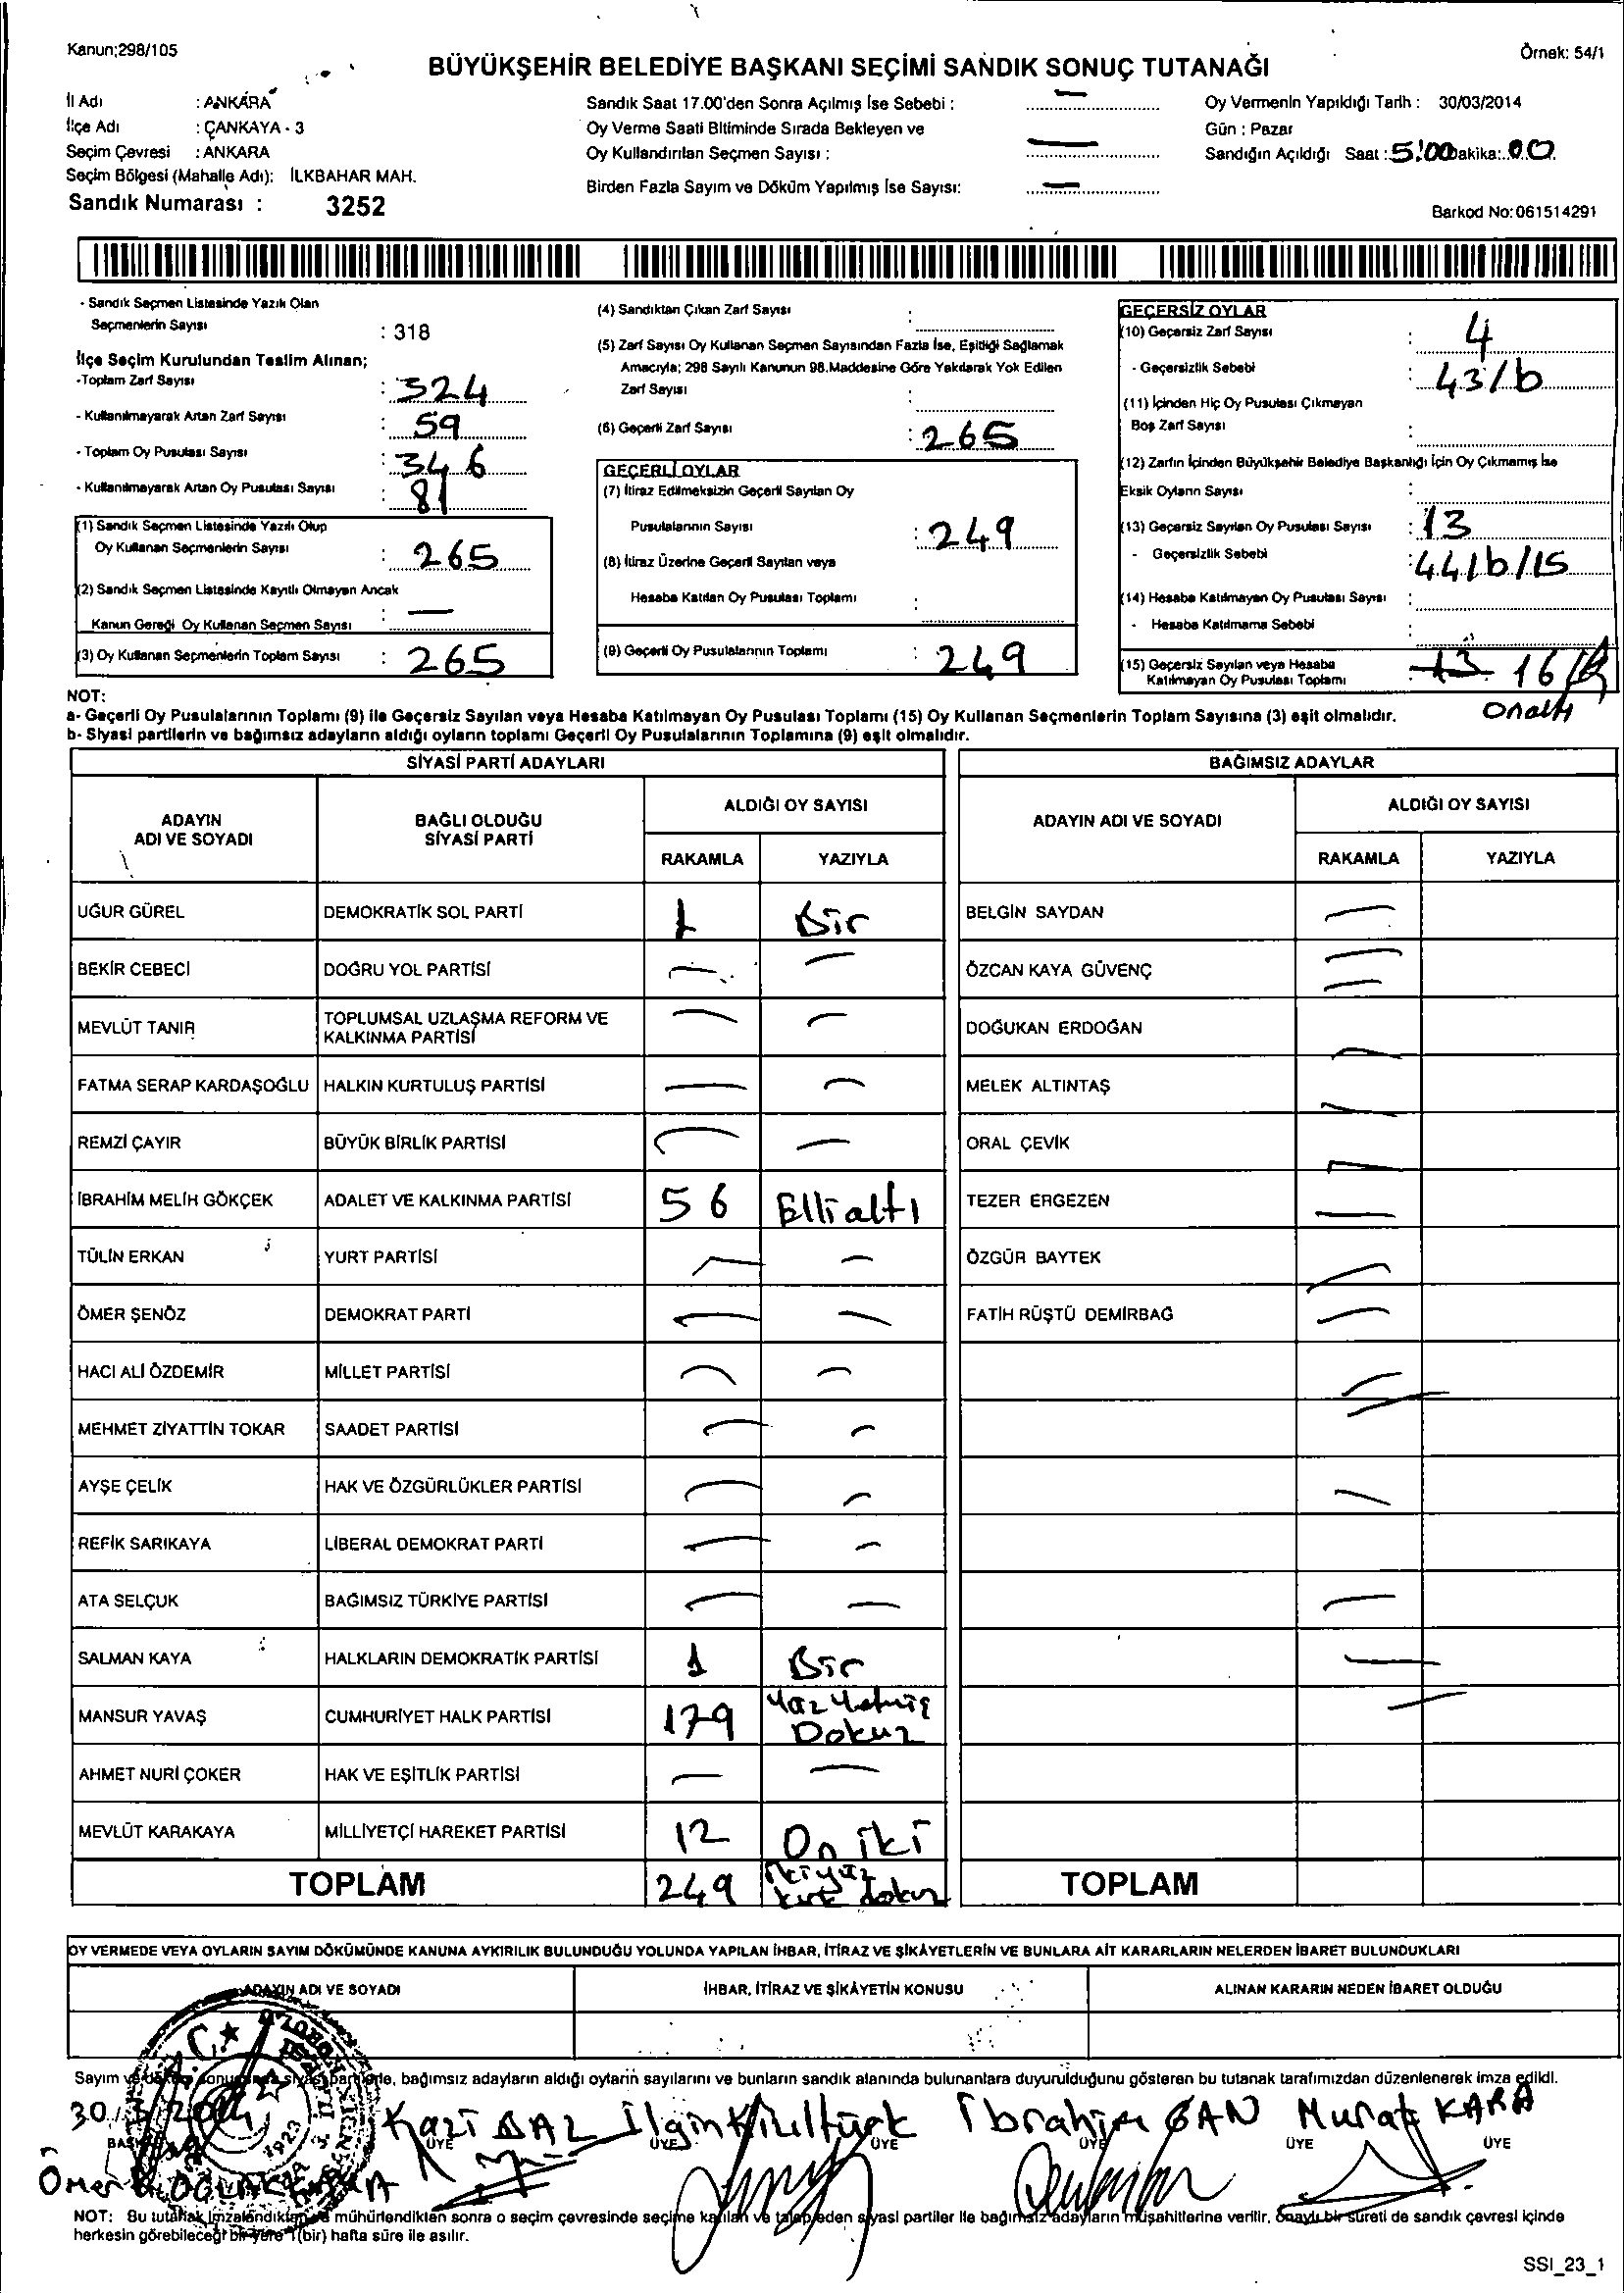 Kanun;298/105
Örnek: 54/1
BÜYÜKŞEHİR BELEDİYE BAŞKANI SEÇİMİ SANDIK SONUÇ TUTANAĞI
İl Adı : ANKARA
İlçe Adı : ÇANKAYA - 3
Seçim Çevresi : ANKARA
Seçim Bölgesi (Mahalle Adı): İLKBAHAR MAH.
Sandık Numarası : 3252
Sandık Saat 17.00'den Sonra Açılmış İse Sebebi : —
Oy Verme Saati Bitiminde Sırada Bekleyen ve
Oy Kullandırılan Seçmen Sayısı : —
Birden Fazla Sayım ve Döküm Yapılmış İse Sayısı: —
Oy Vermenin Yapıldığı Tarih : 30/03/2014
Gün : Pazar
Sandığın Açıldığı Saat : 5:00 Dakika: 00
Barkod No: 061514291
- Sandık Seçmen Listesinde Yazılı Olan
Seçmenlerin Sayısı : 318
İlçe Seçim Kurulundan Teslim Alınan;
-Toplam Zarf Sayısı : 324
- Kullanılmayarak Artan Zarf Sayısı : 59
- Toplam Oy Pusulası Sayısı : 346
- Kullanılmayarak Artan Oy Pusulası Sayısı : 81
(1) Sandık Seçmen Listesinde Yazılı Olup
Oy Kullanan Seçmenlerin Sayısı : 265
(2) Sandık Seçmen Listesinde Kayıtlı Olmayan Ancak
Kanun Gereği Oy Kullanan Seçmen Sayısı : —
(3) Oy Kullanan Seçmenlerin Toplam Sayısı : 265
(4) Sandıktan Çıkan Zarf Sayısı :
(5) Zarf Sayısı Oy Kullanan Seçmen Sayısından Fazla İse, Eşitliği Sağlamak
Amacıyla; 298 Sayılı Kanunun 98.Maddesine Göre Yakılarak Yok Edilen
Zarf Sayısı :
(6) Geçerli Zarf Sayısı : 265
GEÇERLİ OYLAR
(7) İtiraz Edilmeksizin Geçerli Sayılan Oy
Pusulalarının Sayısı : 249
(8) İtiraz Üzerine Geçerli Sayılan veya
Hesaba Katılan Oy Pusulası Toplamı :
(9) Geçerli Oy Pusulalarının Toplamı : 249
GEÇERSİZ OYLAR
(10) Geçersiz Zarf Sayısı : 4
- Geçersizlik Sebebi : 43/b
(11) İçinden Hiç Oy Pusulası Çıkmayan
Boş Zarf Sayısı :
(12) Zarfın İçinden Büyükşehir Belediye Başkanlığı İçin Oy Çıkmamış İse
Eksik Oyların Sayısı :
(13) Geçersiz Sayılan Oy Pusulası Sayısı : 13
- Geçersizlik Sebebi : 44/b/15
(14) Hesaba Katılmayan Oy Pusulası Sayısı :
- Hesaba Katılmama Sebebi :
(15) Geçersiz Sayılan veya Hesaba
Katılmayan Oy Pusulası Toplamı : 13 16
Onaltı
NOT:
a- Geçerli Oy Pusulalarının Toplamı (9) ile Geçersiz Sayılan veya Hesaba Katılmayan Oy Pusulası Toplamı (15) Oy Kullanan Seçmenlerin Toplam Sayısına (3) eşit olmalıdır.
b- Siyasi partilerin ve bağımsız adayların aldığı oyların toplamı Geçerli Oy Pusulalarının Toplamına (9) eşit olmalıdır.
SİYASİ PARTİ ADAYLARI
BAĞIMSIZ ADAYLAR
ADAYIN
ADI VE SOYADI
BAĞLI OLDUĞU
SİYASİ PARTİ
ALDIĞI OY SAYISI
RAKAMLA YAZIYLA
ADAYIN ADI VE SOYADI
ALDIĞI OY SAYISI
RAKAMLA YAZIYLA
UĞUR GÜREL DEMOKRATİK SOL PARTİ 1 Bir BELGİN SAYDAN —
BEKİR CEBECİ DOĞRU YOL PARTİSİ — — ÖZCAN KAYA GÜVENÇ —
MEVLÜT TANIR TOPLUMSAL UZLAŞMA REFORM VE
KALKINMA PARTİSİ — — DOĞUKAN ERDOĞAN —
FATMA SERAP KARDAŞOĞLU HALKIN KURTULUŞ PARTİSİ — — MELEK ALTINTAŞ —
REMZİ ÇAYIR BÜYÜK BİRLİK PARTİSİ — — ORAL ÇEVİK —
İBRAHİM MELİH GÖKÇEK ADALET VE KALKINMA PARTİSİ 56 Ellialtı TEZER ERGEZEN —
TÜLİN ERKAN YURT PARTİSİ — — ÖZGÜR BAYTEK —
ÖMER ŞENÖZ DEMOKRAT PARTİ — — FATİH RÜŞTÜ DEMİRBAĞ —
HACI ALİ ÖZDEMİR MİLLET PARTİSİ — — —
MEHMET ZİYATTİN TOKAR SAADET PARTİSİ — — —
AYŞE ÇELİK HAK VE ÖZGÜRLÜKLER PARTİSİ — — —
REFİK SARIKAYA LİBERAL DEMOKRAT PARTİ — —
ATA SELÇUK BAĞIMSIZ TÜRKİYE PARTİSİ — — —
SALMAN KAYA HALKLARIN DEMOKRATİK PARTİSİ 1 Bir —
MANSUR YAVAŞ CUMHURİYET HALK PARTİSİ 179 Yüz Yetmiş
Dokuz —
AHMET NURİ ÇOKER HAK VE EŞİTLİK PARTİSİ — —
MEVLÜT KARAKAYA MİLLİYETÇİ HAREKET PARTİSİ 12 On iki
TOPLAM 249 İkiyüz
kırk dokuz TOPLAM
OY VERMEDE VEYA OYLARIN SAYIM DÖKÜMÜNDE KANUNA AYKIRILIK BULUNDUĞU YOLUNDA YAPILAN İHBAR, İTİRAZ VE ŞİKÂYETLERİN VE BUNLARA AİT KARARLARIN NELERDEN İBARET BULUNDUKLARI
ADAYIN ADI VE SOYADI İHBAR, İTİRAZ VE ŞİKÂYETİN KONUSU ALINAN KARARIN NEDEN İBARET OLDUĞU
Sayım ve döküm sonucunda siyasi partilerle, bağımsız adayların aldığı oyların sayılarını ve bunların sandık alanında bulunanlara duyurulduğunu gösteren bu tutanak tarafımızdan düzenlenerek imza edildi.
30/3/2014 Kazi BAL Ilgın Kızıltürk İbrahim CAN Murat KARA
ÜYE ÜYE ÜYE ÜYE ÜYE ÜYE
Ömer
1923
NOT: Bu tutanak imzalandıktan ve mühürlendikten sonra o seçim çevresinde seçime katılan ve talep eden siyasi partiler ile bağımsız adayların müşahitlerine verilir, onaylı bir sureti de sandık çevresi içinde
herkesin görebileceği bir yere 1(bir) hafta süre ile asılır.
SSI_23_1